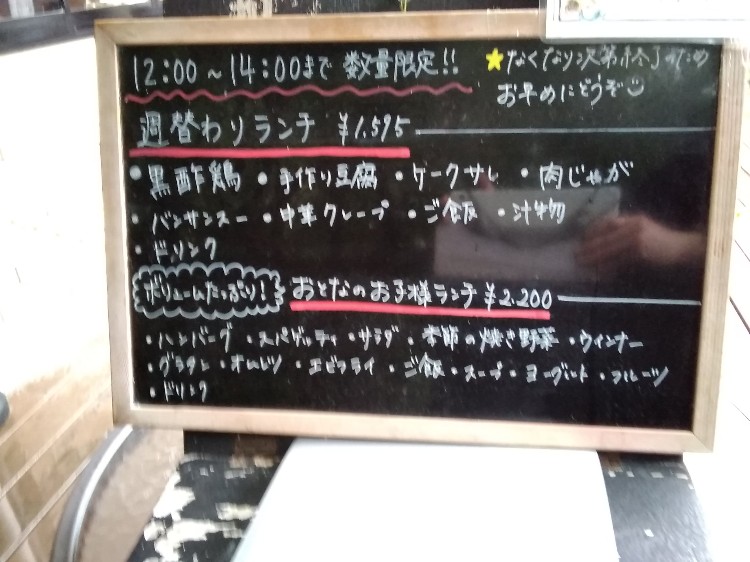 12:00～14:00まで 数量限定!!
★なくなり次第終了のため
お早めにどうぞ
週替わりランチ ¥1.595
・黒酢鶏 ・手作り豆腐 ・ケークサレ ・肉じゃが
・バンサンスー ・中華クレープ ・ご飯 ・汁物
・ドリンク
ボリュームたっぷり! おとなのお子様ランチ ¥2.200
・ハンバーグ ・スパゲッティ ・サラダ ・季節の焼き野菜 ・ウィンナー
・グラタン ・オムレツ ・エビフライ ・ご飯 ・スープ ・ヨーグルト ・フルーツ
・ドリンク